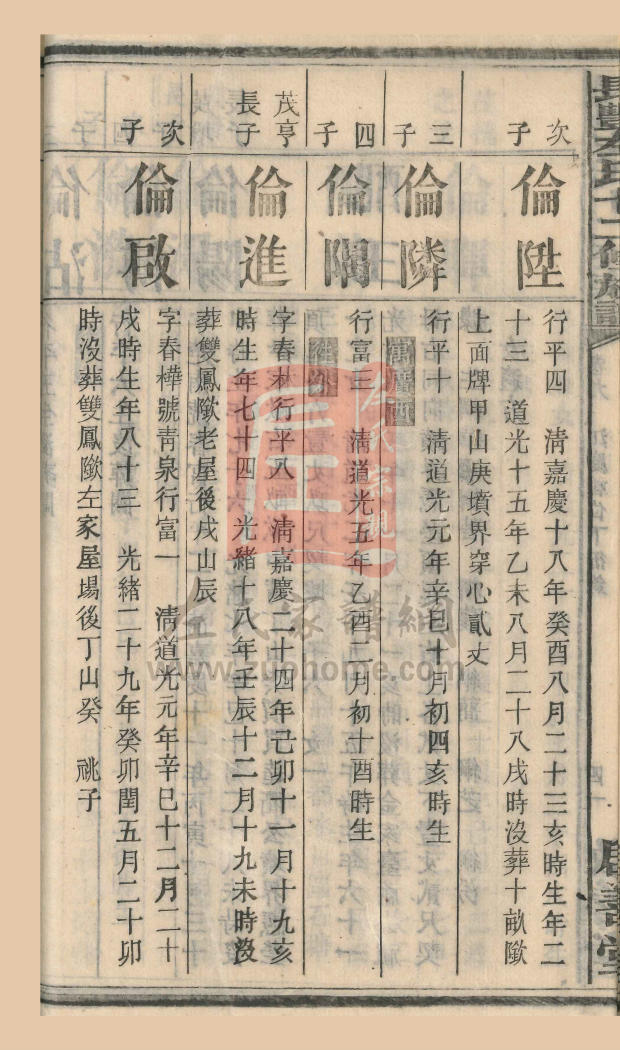 次子
倫陞
行平四　清嘉慶十八年癸酉八月二十三亥時生年二
十三　道光十五年乙未八月二十八戌時沒葬十畝㘰
上面牌甲山庚墳界穿心貳丈
三子
倫隣
行平十　清道光元年辛巳十月初四亥時生
寓廣西
四子
倫隅
行富三　清道光五年乙酉二月初十酉時生
茂亨長子
倫進
字春林行平八　清嘉慶二十四年己卯十一月十九亥
時生年七十四　光緒十八年壬辰十二月十九未時沒
葬雙鳳㘰老屋後戌山辰
次子
倫啟
字春樺號靑泉行富一　清道光元年辛巳十二月二十
戌時生年八十三　光緒二十九年癸卯閏五月二十卯
時沒葬雙鳳㘰左家屋場後丁山癸　祧子
左氏宗親
左氏家譜網
www.zuohome.com